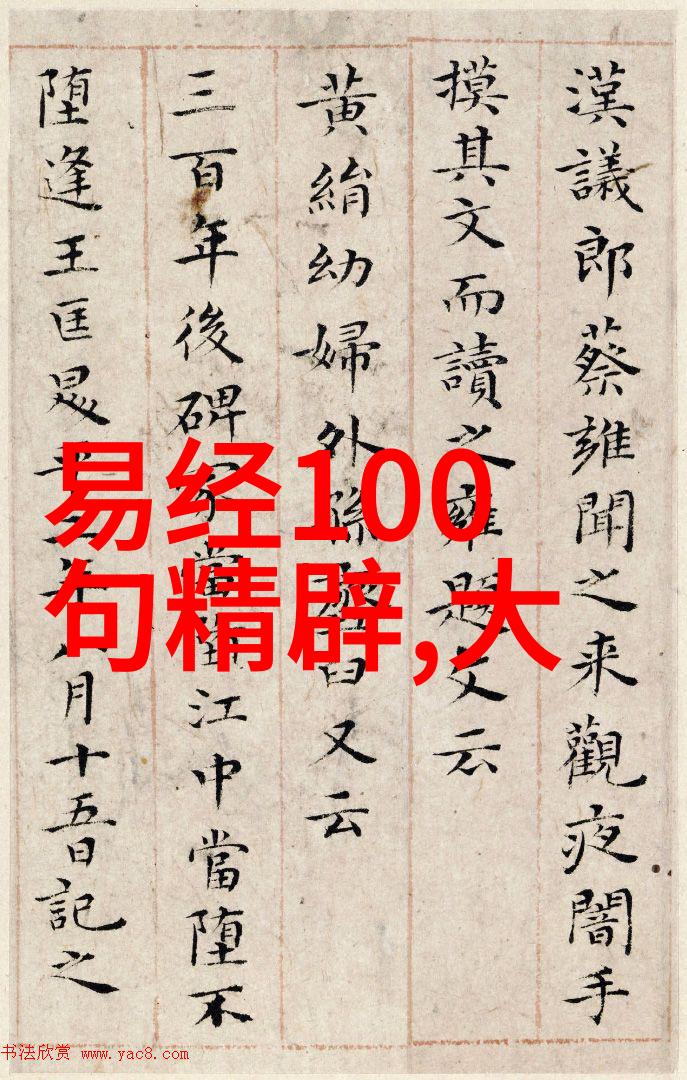 漢議郎蔡雍聞之来觀夜闇手
摸其文而讀之雍題文云
黄絹幼婦外孫臼又云
三百年後碑冢當墮江中當堕不
堕逢王匡昇平二年八月十五日記之
易经100
句精辟,大
书法欣赏 www.yac8.com